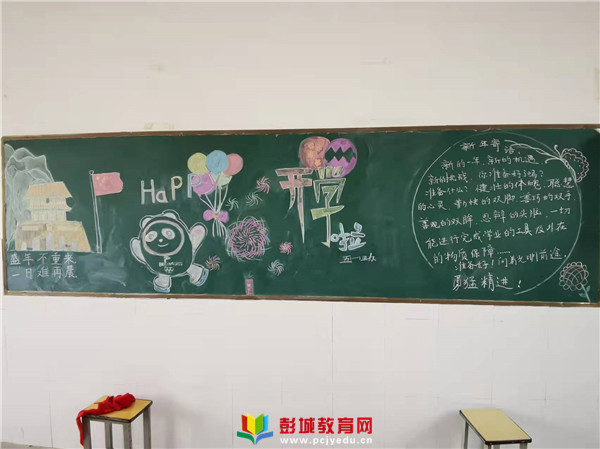 盛年不重来
一日难再晨
HaPP
开学
啦
新年寄语
新的一年,新的机遇,
新的挑战,你准备好了吗?
准备什么?健壮的体魄,聪慧
的心灵,勤快的双脚,灵巧的双手
善观的双眸,思辩的头脑,一切
能进行完成学业的工具及外在
的物质保障……
准备好了!向着光明前途,
勇猛精进!
彭城教育网
www.pcjyedu.cn